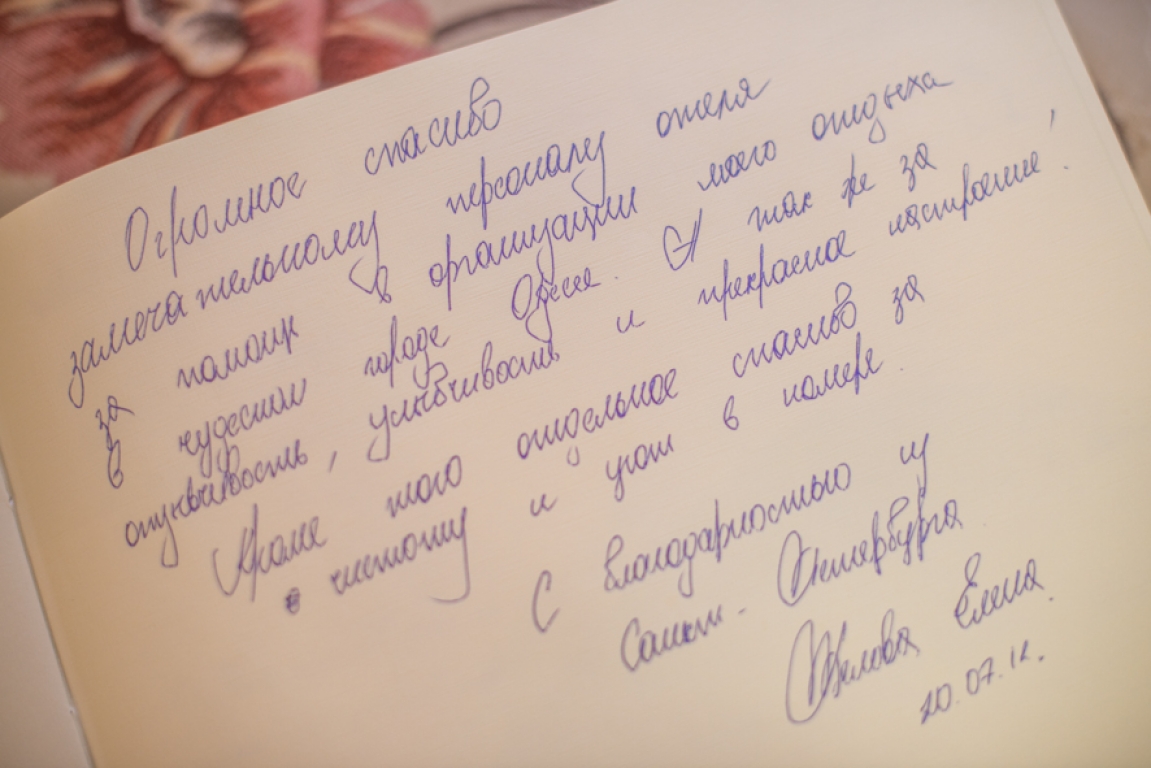 Огромное спасибо
замечательному персоналу отеля
за помощь в организации моего отдыха
в чудесном городе Одессе. А так же за
отзывчивость, улыбчивость и прекрасное настроение!
Кроме того отдельное спасибо за
чистоту и уют в номере.
С благодарностью из
Санкт-Петербурга
Елена
20.07.12.